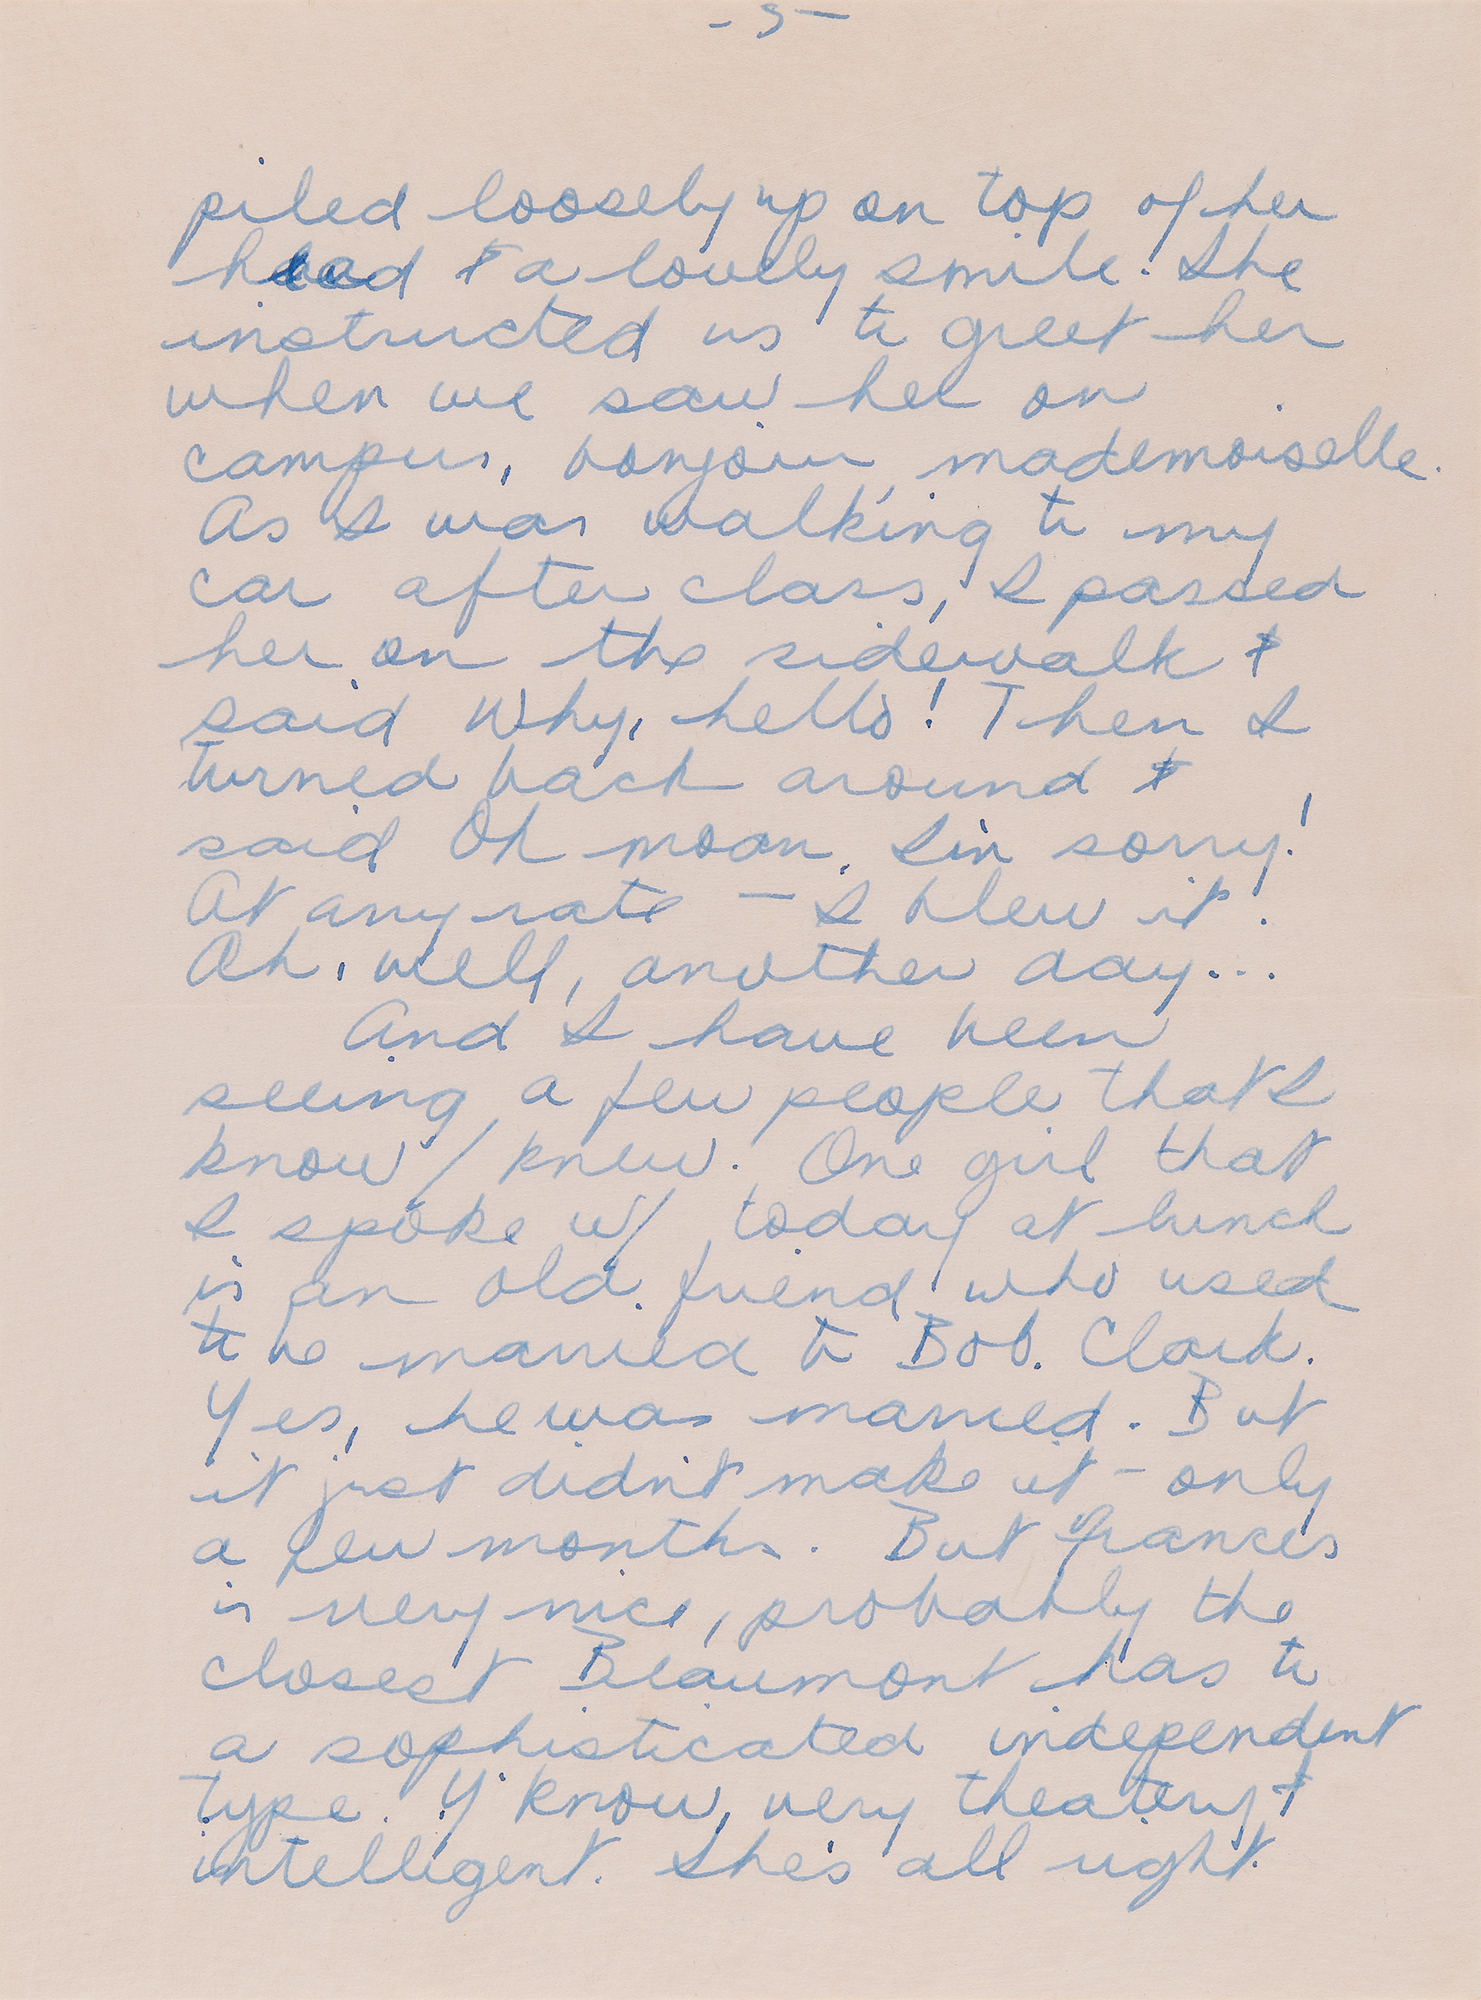 - 5 -
piled loosely up on top of her
head & a lovely smile. She
instructed us to greet her
when we saw her on
campus, bonjour, mademoiselle.
As I was walking to my
car after class, I passed
her on the sidewalk &
said Why, hello! Then I
turned back around &
said Oh moan, I'm sorry!
At any rate – I blew it!
Ah, well, another day...
And I have been
seeing a few people that I
know / knew. One girl that
I spoke w/ today at lunch
is an old friend who used
to be married to Bob Clark.
Yes, he was married. But
it just didn't make it – only
a few months. But Frances
is very nice, probably the
closest Beaumont has to
a sophisticated independent
type. Y'know, very theatery &
intelligent. She's all right.